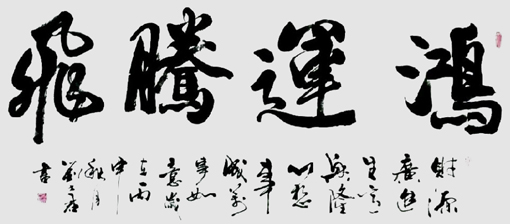 鴻運騰飛
財源
廣進
生意
興隆
心想
事
成萬
事如
意歲
在丙
申
秋月
書